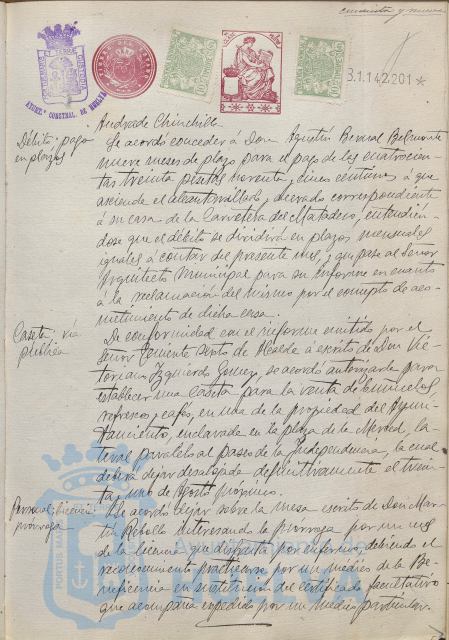 cuarenta y nueve
AYUNT.º CONSTNAL. DE HUELVA
B.1.142.201 *
Andrade Chinchilla
Débito: pago
en plazos
Se acordó conceder á Don Agustín Bernal Belmonte
nueve meses de plazo para el pago de las cuatrocien-
tas treinta pesetas noventa y cinco centimos á que
asciende el alcantarillado y acerado correspondiente
á su casa de la Carretera del Matadero, entendien-
dose que el débito se dividirá en plazos mensuales
iguales á contar del presente mes, y que pase al Señor
Arquitecto Municipal para su informe en cuanto
á la reclamación del mismo por el concepto de aco-
metimiento de dicha casa.
Caseta vía
pública
De conformidad con el informe emitido por el
Señor Teniente Sexto de Alcalde á escrito de Don Vic-
toriano Izquierdo Gomez, se acordó autorizarle para
establecer una Caseta para la venta de buñuelos,
refrescos y cafés, en una de la propiedad del Ayun-
tamiento, enclavada en la plaza de la Merced, la-
teral paralelo al paseo de la Independencia, la cual
deberá dejar desalojada definitivamente el trein-
ta y uno de Agosto próximo.
Personal; licencia
prórroga
Se acordó dejar sobre la mesa escrito de Don Mar-
tín Rebollo interesando la prórroga por un mes
de la licencia que disfruta por enfermo, debiendo el
reconocimiento practicarse por un medico de la Be-
neficencia en sustitución del certificado facultativo
que acompaña expedido por un medico particular.